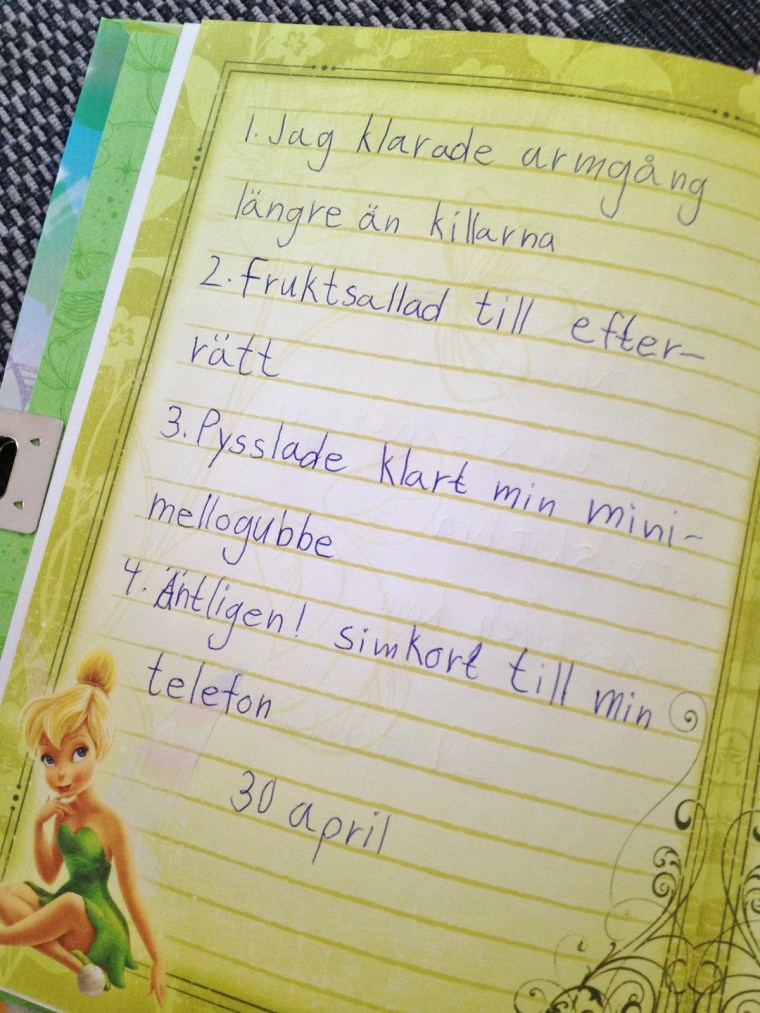 1. Jag klarade armgång
längre än killarna
2. Fruktsallad till efter-
rätt
3. Pysslade klart min mini-
mellogubbe
4. Äntligen! simkort till min
telefon
30 april